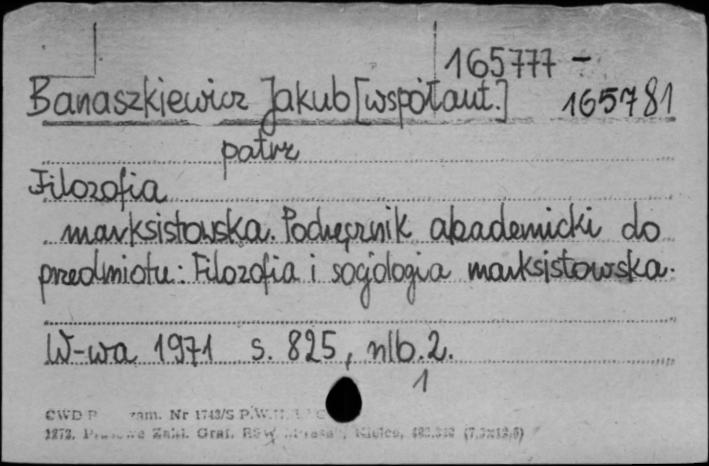 165777 -
Banaszkiewicz Jakub [współaut.] 165781
patrz
Filozofia
marksistowska. Podręcznik akademicki do
przedmiotu: Filozofia i socjologia marksistowska.
W-wa 1971 s. 825, nlb. 2.
1
CWD zam. Nr 1743/S
Zakł. Graf. RSW Kielce,